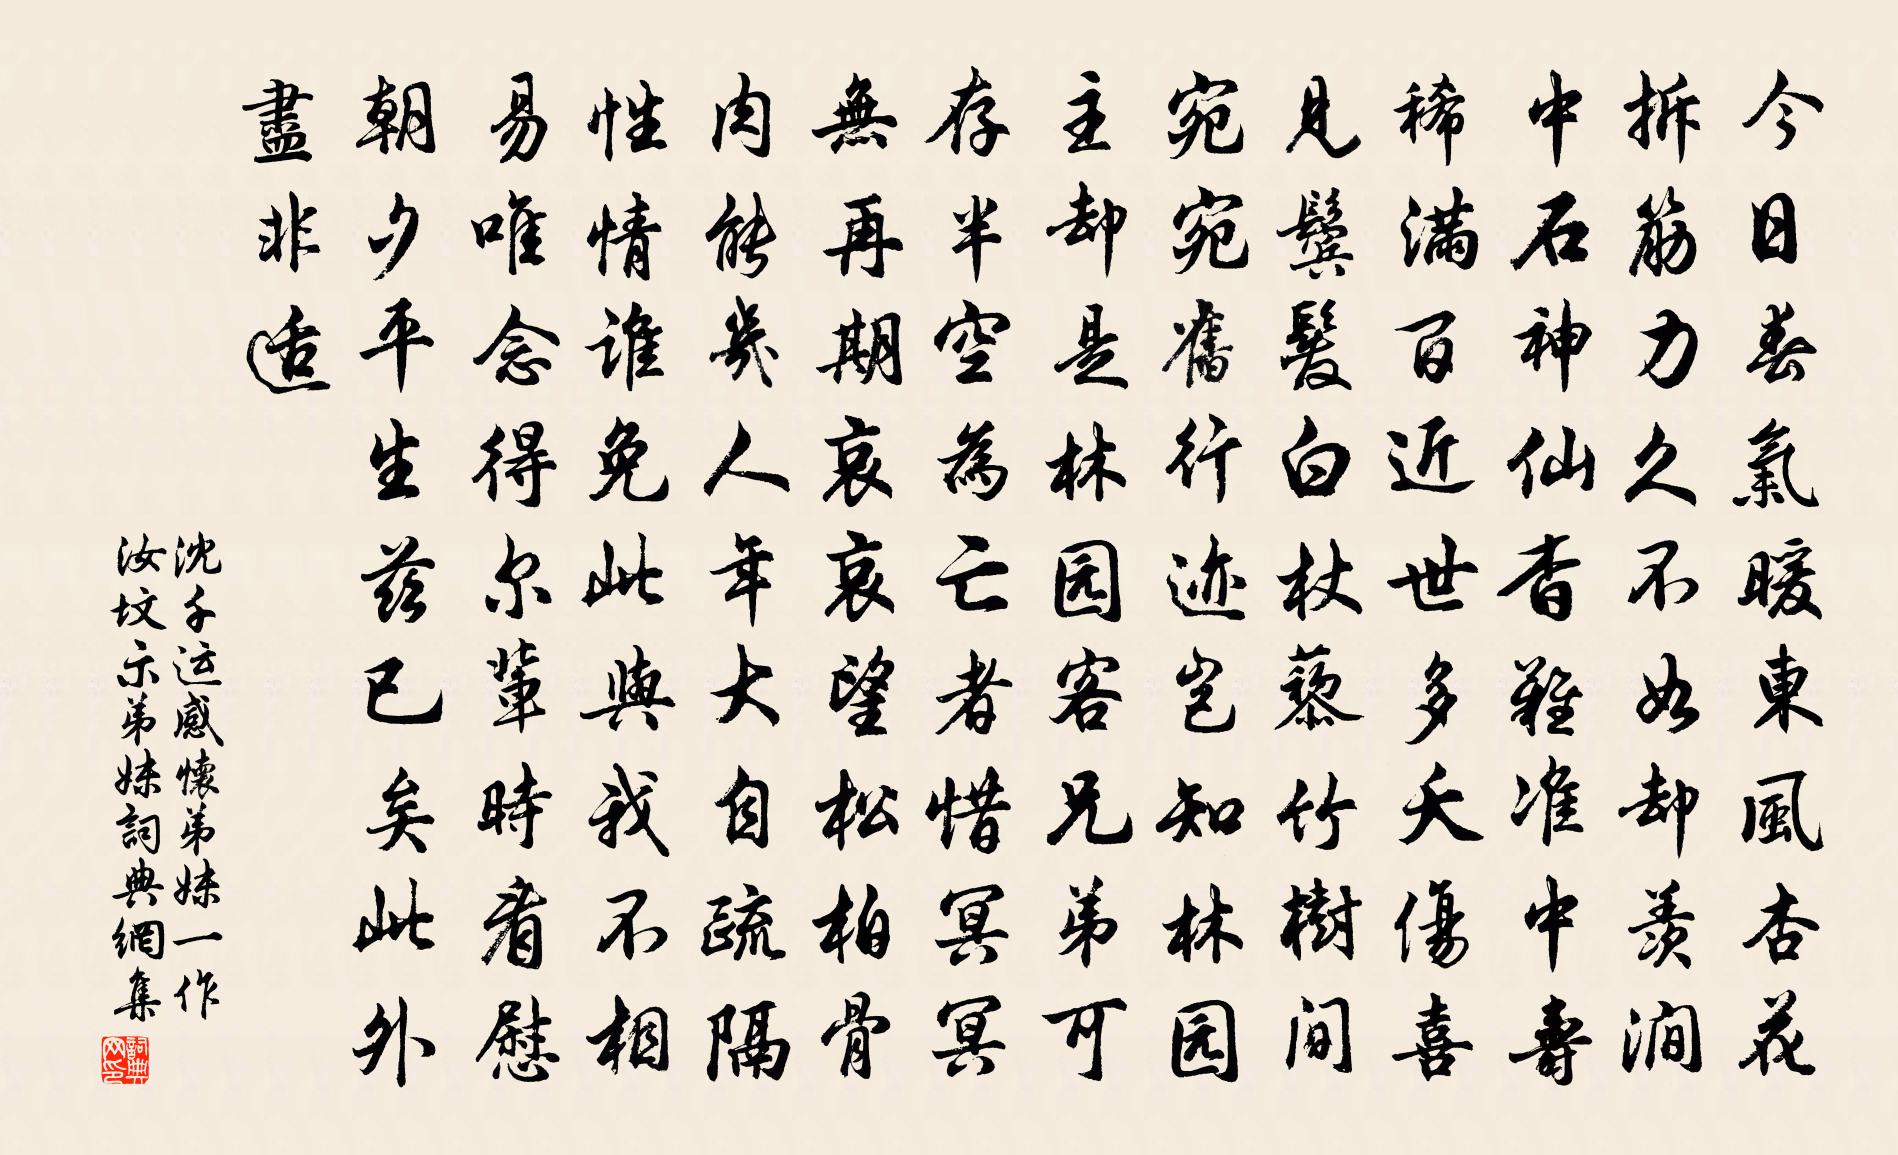 今日春氣暖東風杏花
拆筋力久不如却羡澗
中石神仙杳難准中壽
稀滿百近世多夭傷喜
見鬢髮白杖藜竹樹間
宛宛舊行迹豈知林园
主却是林园客兄弟可
存半空為亡者惜冥冥
無再期哀哀望松柏骨
肉能幾人年大自疏隔
性情谁免此與我不相
易唯念得尔輩時看慰
朝夕平生茲已矣此外
盡非适
沈千运感懷弟妹一作
汝坟示弟妹詞典網集
詞典网印